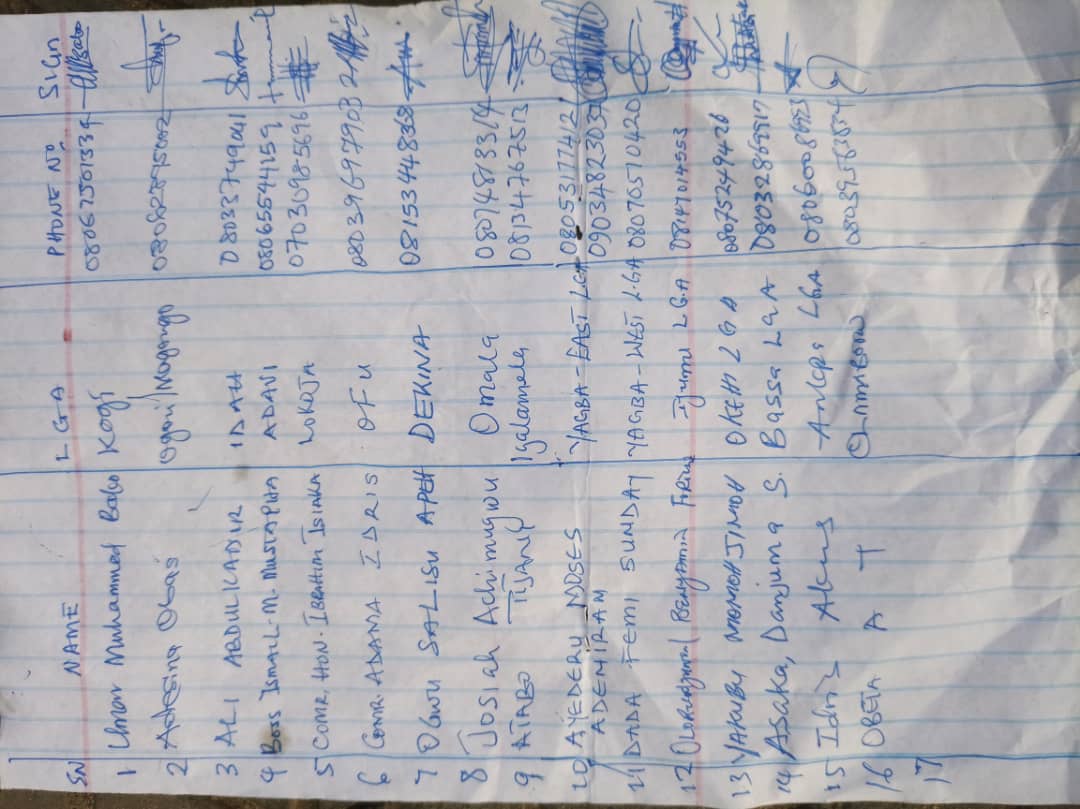 SN NAME LGA PHONE No SIGN
1 Umar Muhammed Babo Kogi 08067501334
2 Adesina Obas Ogori/Magongo
3 ALI ABDULKADIR IDAH 08033749041
4 Boss Ismail. M. MUSTAPHA ADAVI 08065544159
5 COMR. HON. IBRAHIM ISIAKA LOKOJA 07030985696
6 Comr. ADAMA IDRIS OFU 08039697903
7 OGWU SALISU APEH DEKINA 0815344838
8 JOSIAH Achimugwu Omala
9 ATABO TIJANI Igalamela 08134767513
10 AYEDERU MOSES YAGBA-EAST LGA 08053177412
ADEMIRAM 09034823037
11 DADA FEMI SUNDAY YAGBA-WEST L.G.A 08070510420
12 Benjamin Ijumu L.G.A 08147014553
13 YAKUBU MOMOHJIMOH OKEHI LGA 08075249426
14 Asaka, Danjuma S. Bassa LGA 08032869517
15 Idris Ankpa LGA 08060008693
16 OBEIA A T
17